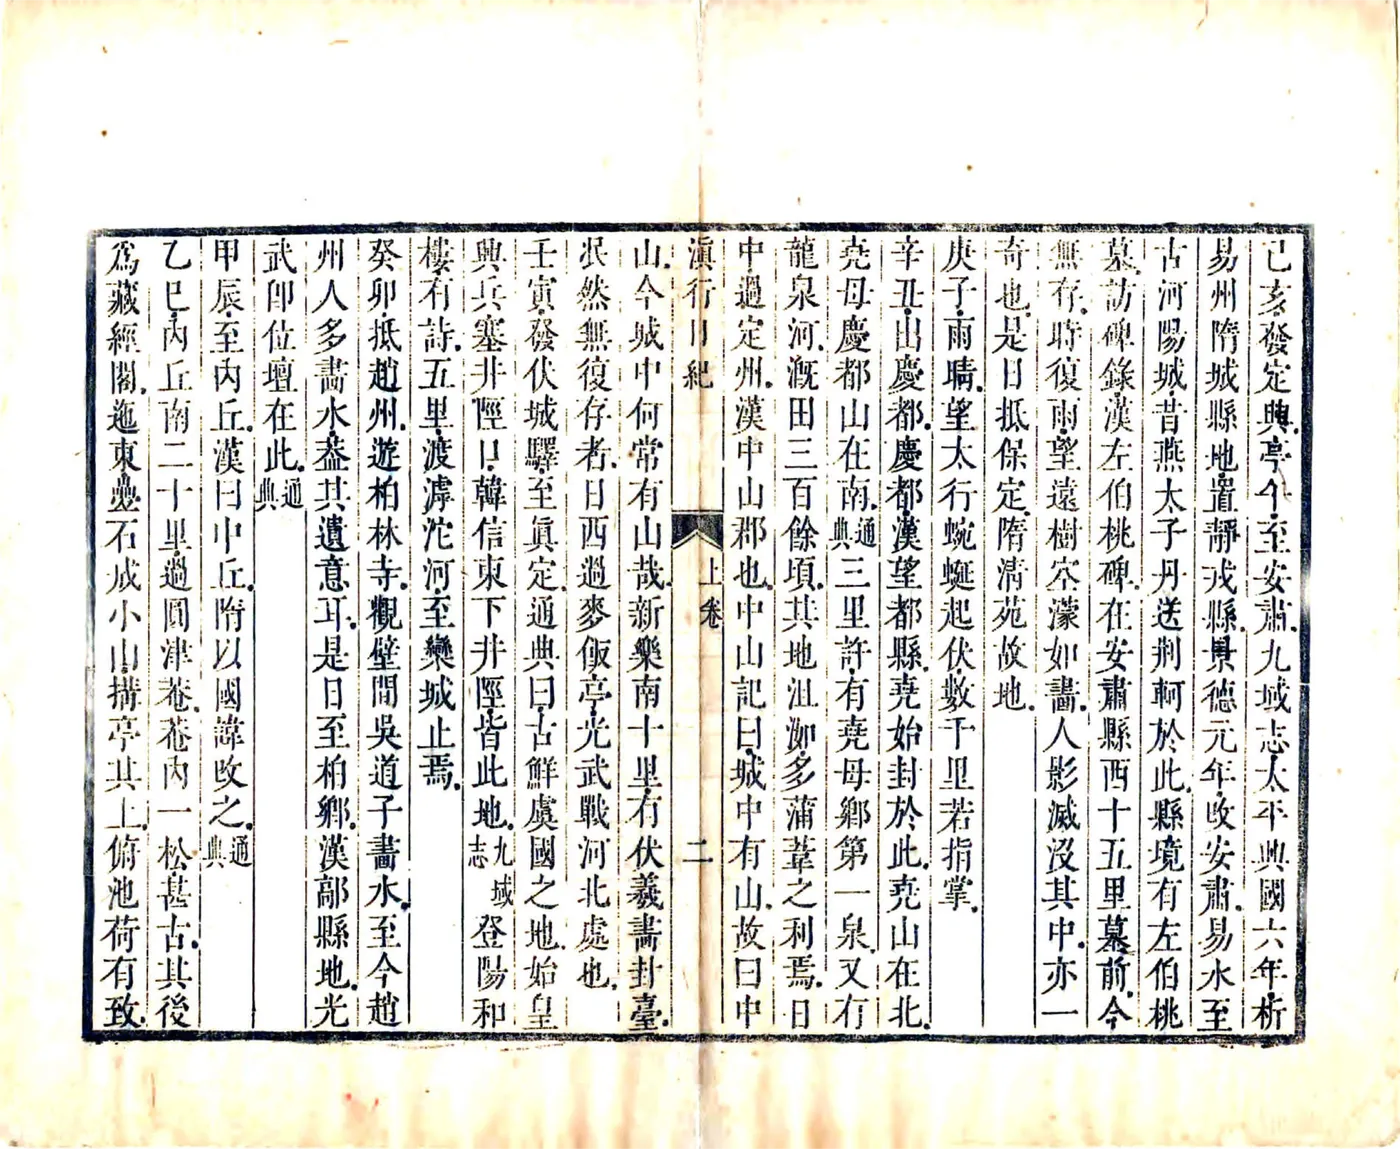 己亥發定興亭午至安肅九域志太平興國六年析
易州隋城縣地置靜戎縣景德元年改安肅易水至
古河陽城昔燕太子丹送荆軻於此縣境有左伯桃
墓訪碑錄漢左伯桃碑在安肅縣西十五里墓前今
無存時復雨望遠樹空濛如畫人影滅沒其中亦一
奇也是日抵保定隋清苑故地
庚子雨晴望太行蜿蜒起伏數千里若指掌
辛丑出慶都慶都漢望都縣堯始封於此堯山在北
堯母慶都山在南通典三里許有堯母鄉第一泉又有
龍泉河漑田三百餘頃其地沮洳多蒲葦之利焉日
中過定州漢中山郡也中山記曰城中有山故曰中
滇行日紀 卷上 二
山今城中何常有山哉新樂南十里有伏羲畫卦臺
泯然無復存者日西過麥飯亭光武戰河北處也
壬寅發伏城驛至眞定通典曰古鮮虞國之地始皇
興兵塞井陘口韓信東下井陘皆此地九域志登陽和
樓有詩五里渡滹沱河至欒城止焉
癸卯抵趙州遊柏林寺觀壁間吳道子畫水至今趙
州人多畫水葢其遺意耳是日至柏鄉漢鄗縣地光
武卽位壇在此通典
甲辰至內丘漢曰中丘隋以國諱改之通典
乙巳內丘南二十里過圓津菴菴內一松甚古其後
爲藏經閣迤東疊石成小山搆亭其上俯池荷有致